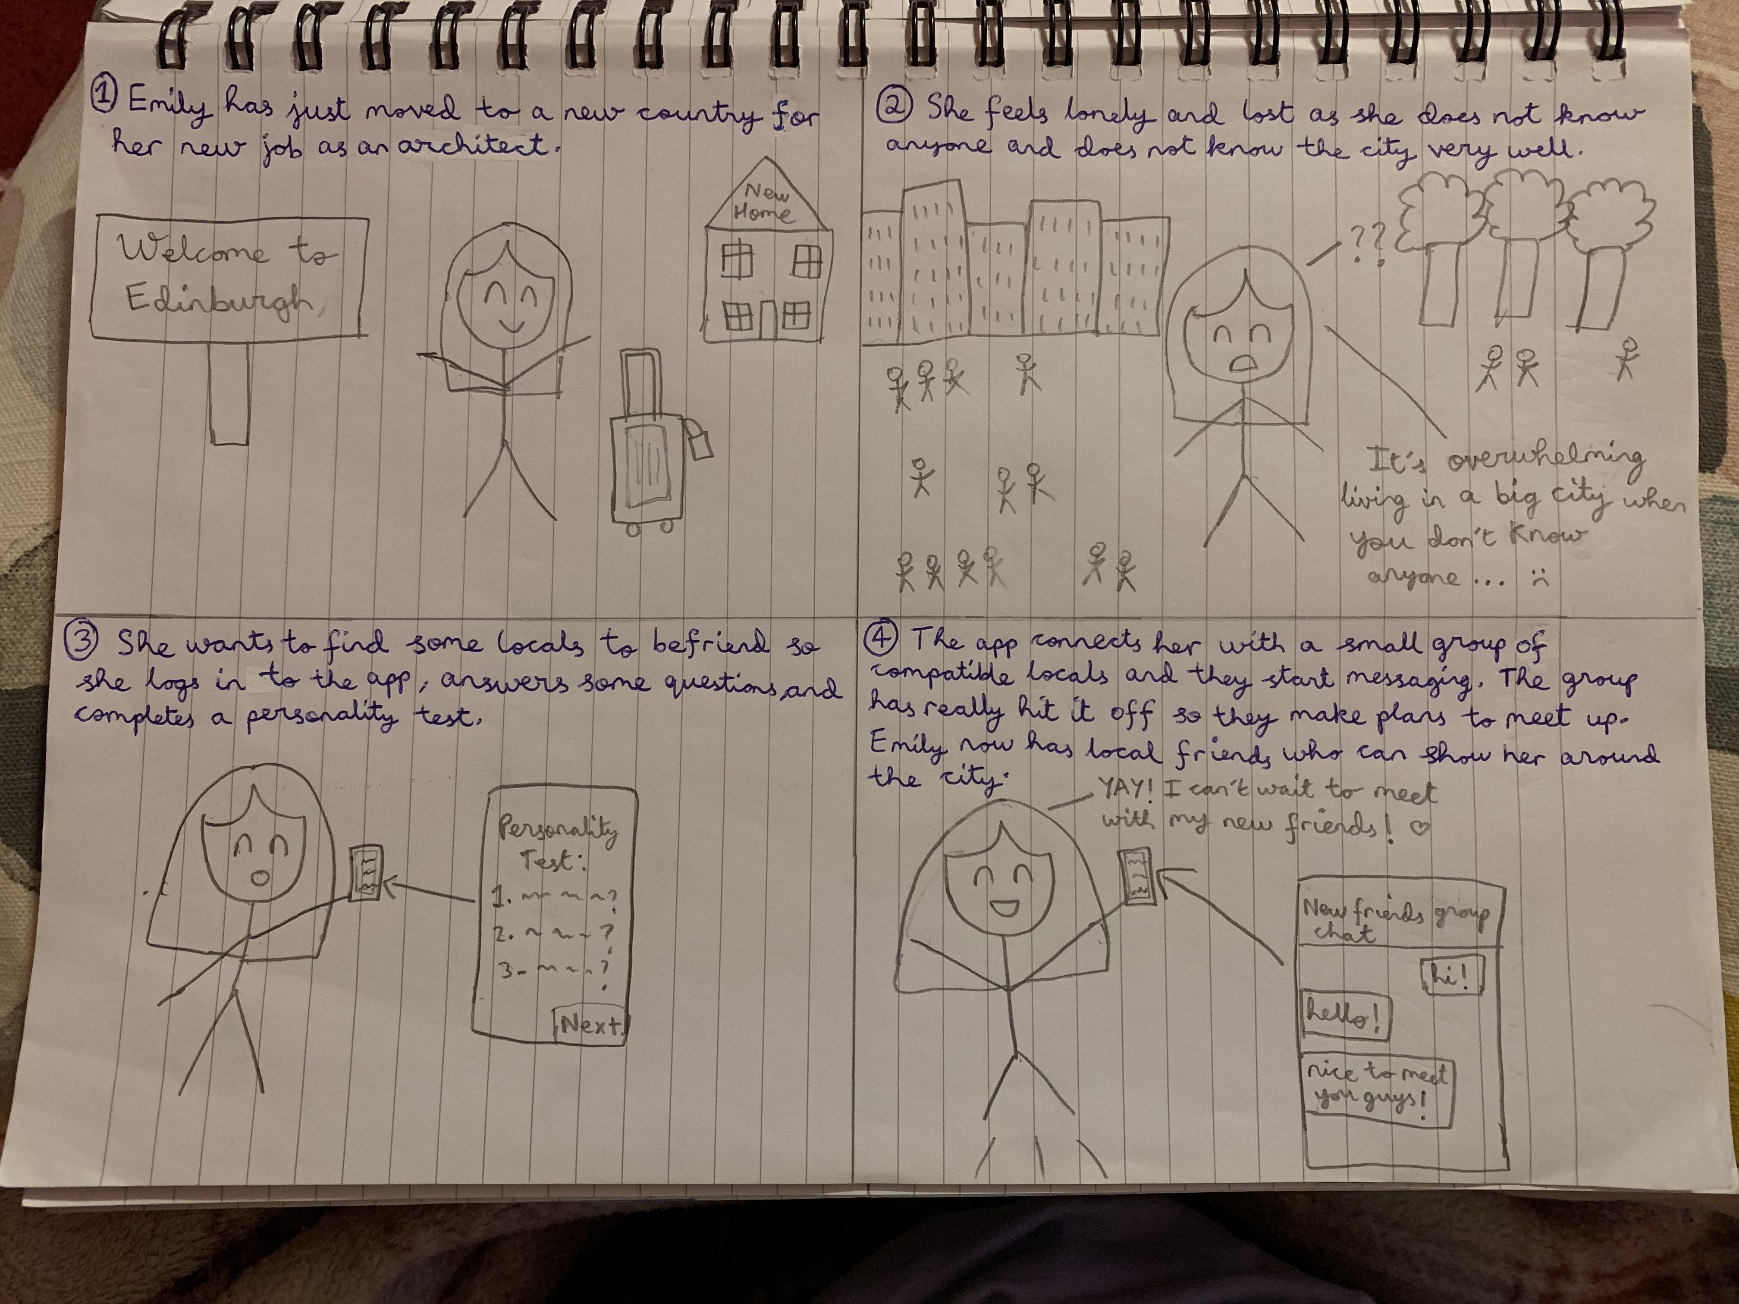 ① Emily has just moved to a new country for
her new job as an architect.
Welcome to
Edinburgh
New
Home
② She feels lonely and lost as she does not know
anyone and does not know the city very well.
??
It's overwhelming
living in a big city when
you don't know
anyone ... :(
③ She wants to find some locals to befriend so
she logs in to the app, answers some questions, and
completes a personality test.
Personality
Test:
1. ~ ~ ~ ~?
2. ~ ~ ~ ?
3. ~ ~ ~ ?
Next
④ The app connects her with a small group of
compatible locals and they start messaging. The group
has really hit it off so they make plans to meet up.
Emily now has local friends who can show her around
the city.
YAY! I can't wait to meet
with my new friends! ♡
New friends group
chat
hi!
hello!
nice to meet
you guys!